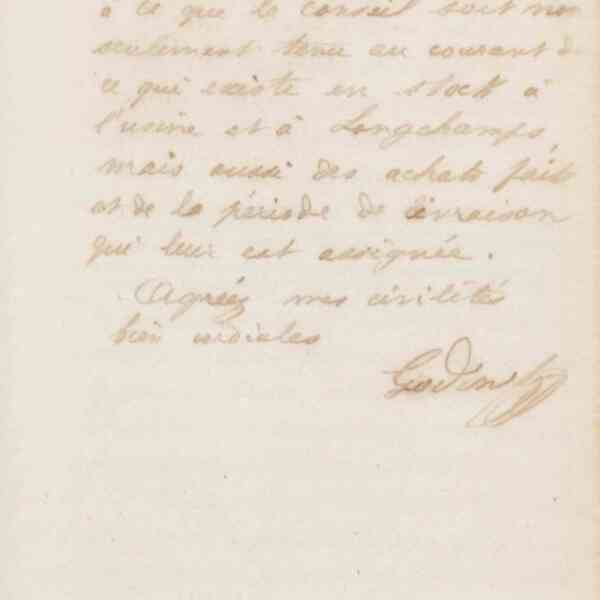 à ce que le conseil soit non
seulement tenu au courant de
ce qui existe en stock à
l'usine et à Longchamps,
mais aussi des achats faits
et de la période de livraison
qui leur est assignée.
Agréez mes civilités
bien cordiales
Godin